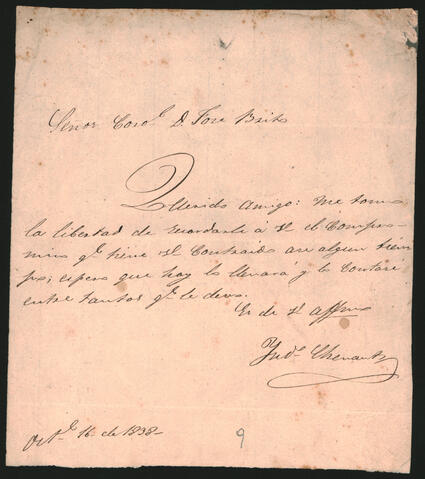 Señor Coro.l D. José Brito
Querido Amigo: me tomo
la libertad de recordarle á V. el Compro-
miso q.e tiene V. Contraido
espero que hoy lo llenará y lo Contaré
entre tantos q.e le devo.
Es de V. affmo
Oct.e 16 de 1838
9